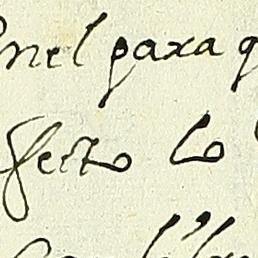 nel para q
fecto lo